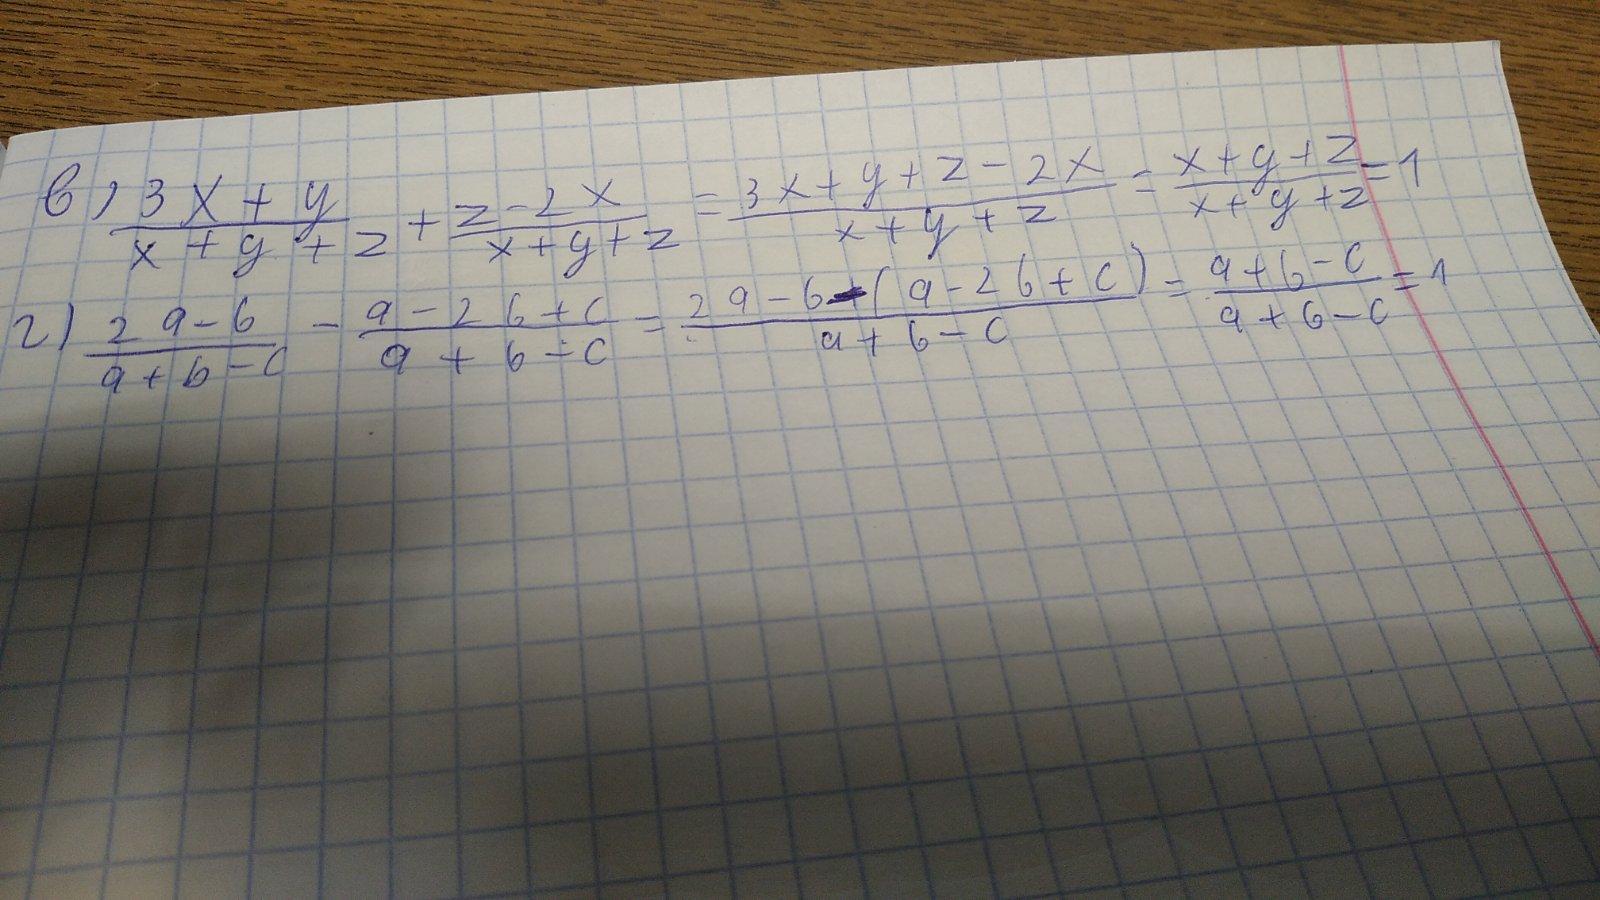 в) (3x+y)/(x+y+z) + (z-2x)/(x+y+z) = (3x+y+z-2x)/(x+y+z) = (x+y+z)/(x+y+z) = 1
г) (2a-b)/(a+b-c) - (a-2b+c)/(a+b-c) = (2a-b-(a-2b+c))/(a+b-c) = (a+b-c)/(a+b-c) = 1